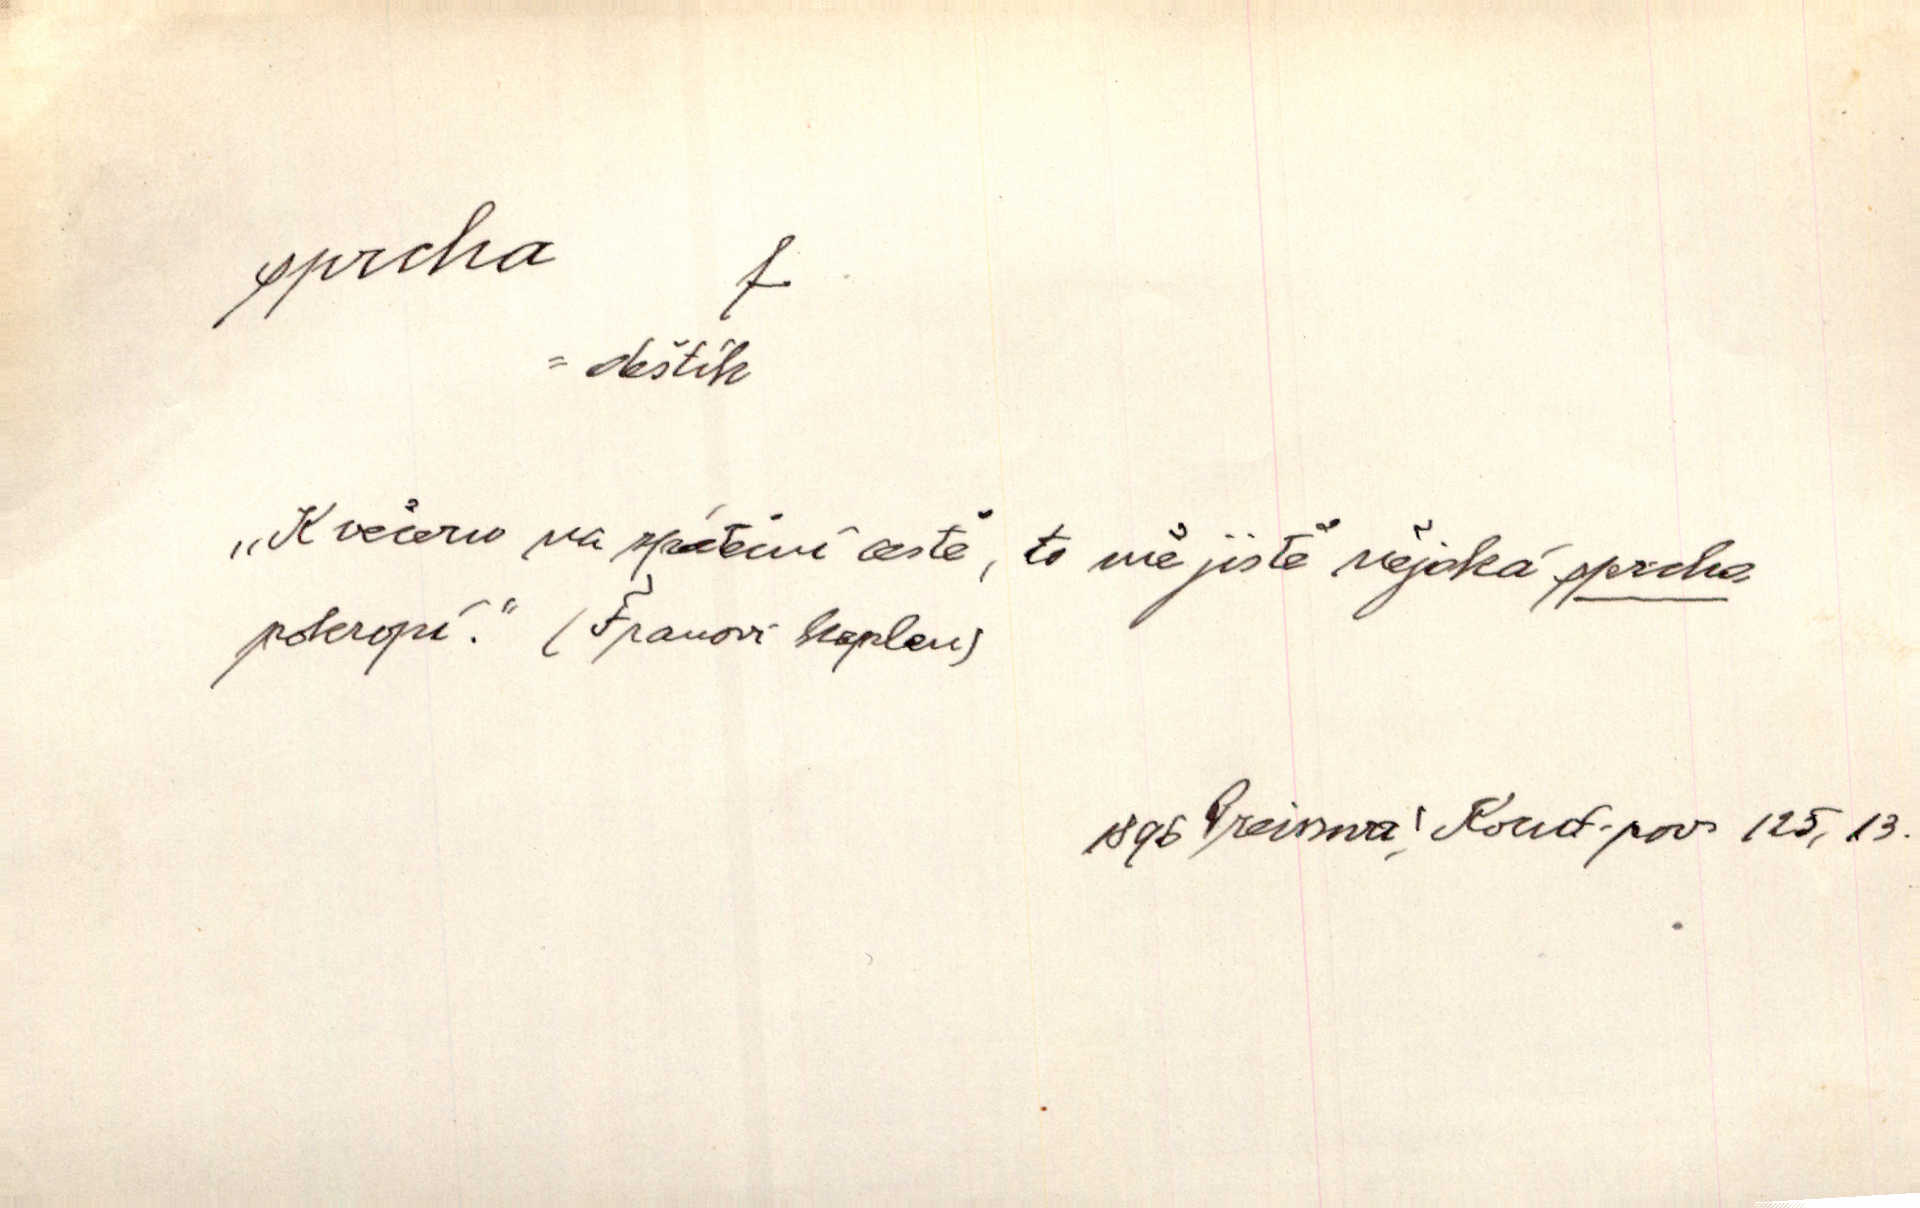 sprcha f
= deštík
„K večeru na zpáteční cestě, to mě jistě nějaká sprcha
pokropí.“ ( kaplan)
1896 Preissová: Kor. pov. 125, 13.